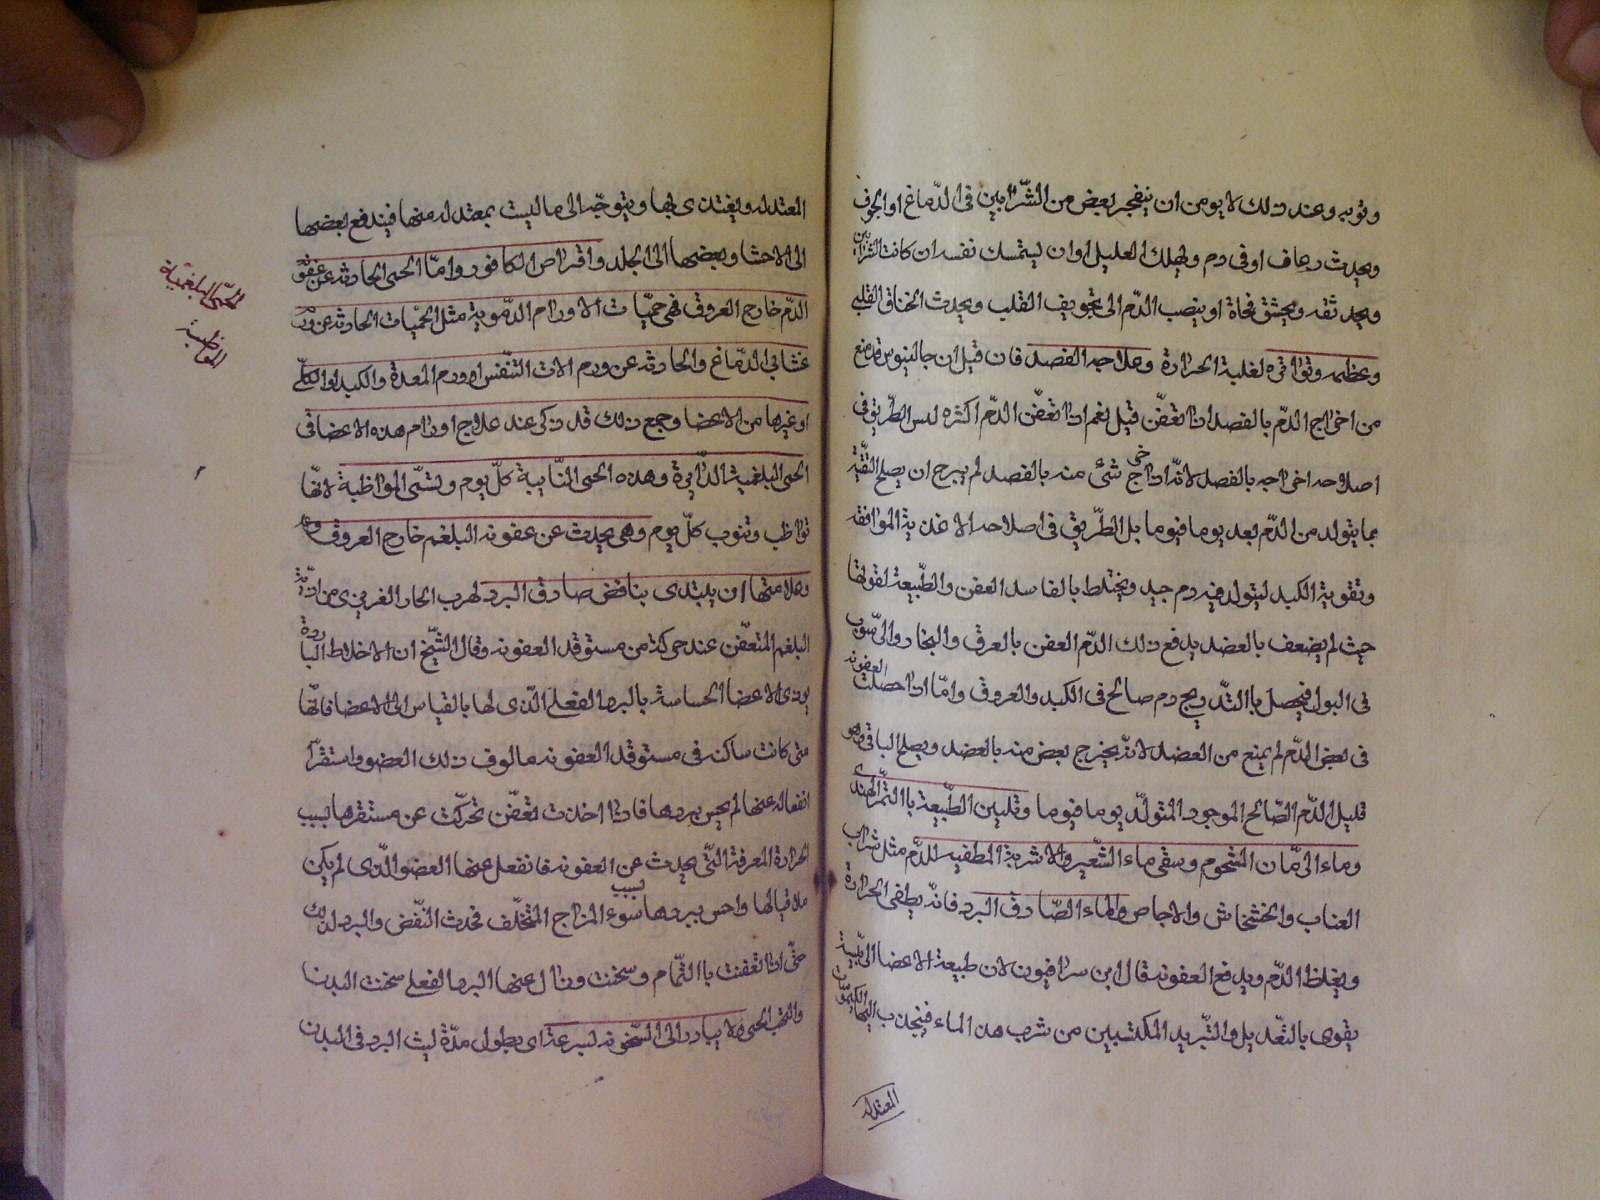 وتوبه وعند ذلك لا يومن ان ينفجر بعض من الشرايين فى الدماغ او الجوف
ويحدث رعاف او قى دم ويهلك العليل او ان ليتمسك نفسه ان كانت الشرايين
ويجد ثقه ويحشق فجاة او ينصب الدم الى تجويف القلب ويحدث الخناق القلبى
وعظمه وتواتره لغلبة الحرارة وعلاجه الفصد فان قيل ان جالينوس قد منع
من اخراج الدم بالفصد اذا تعفن قيل نعم اذا تعفن الدم اكثره ليس الطريق فى
اصلاحه اخراجه بالفصد لانه اذا خرج شئ منه بالفصد لم يبرح ان يصلح البقية
بما يتولد من الدم بعد يوما فيوما بل الطريق فى اصلاحه الاغذية الموافقه
وتقوية الكبد ليتولد فيه دم جيد ويختلط بالفاسد العفن والطبيعة لقوتها
حيث لم يضعف بالفصد يدفع ذلك الدم العفن بالعرق والبخار والرسوب
فى البول فيحصل بالتد ريج دم صالح فى الكبد والعروق واما اذا حصلت العفونه
فى بعض الدم لم يمنع من الفصد لانه يخرج بعض منه بالفصد ويصلح الباقى وهو
قليل الدم الصالح الموجود المتولد يوما فيوما وتليين الطبيعة باالتمر الهندى
وماء الرمان المشحوم وسقى ماء الشعير والاشربة المطفيه للدم مثل شراب
العناب والخشخاش والاجاص والماء الصادق البرد فانه يطفى الحرارة
ويغلظ الدم ويدفع العفونه قال ابن سرافيون لان طبيعة الاعضا الرئيسة
يقوى بالتعديل والتبريد المكتسبين من شرب هذا الماء فينجذب اليها الكيموسات
المعتدله
المعتدله ويغتذى بها ويتوجه الى ما ليست بمعتدله منها فيندفع بعضها
الى الاحشا وبعضها الى الجلد واقراص الكافور واما الحمى الحادثه عن عفونة
الدم خارج العروق فهى حميات الاورام الدموية مثل الحميات الحادثه عن ورم
غشائى الدماغ والحادثه عن ورم الات التنفس او ورم المعدة والكبد او الكلى
او غيرها من الاعضا وجمع ذلك قد ذكر عند علاج اورام هذه الاعضا فى
الحمى البلغمية الدايرة وهذه الحمى النايبة كل يوم وتسمى المواظبة لانها
تواظب وتنوب كل يوم وهى يحدث عن عفونه البلغم خارج العروق
وعلامتها ان يبتدى بنافض صادق البرد لهرب الحار الغريزى من اذية
البلغم المتعفن عند حركته من مستوقد العفونه وقال الشيخ ان الاخلاط الباردة
يوذى الاعضا الحساسة بالبرد الفعلى الذى لها بالقياس الى الاعضا فانها
متى كانت ساكنه فى مستوقد العفونه مالوف ذلك العضو واستقر
انفعاله عنها لم يحس ببردها فاذا اخذت تتعفن تحركت عن مستقرها بسبب
الحرارة المعرفة التى يحدث عن العفونه فانفعل عنها العضو الذى لم يكن
ملاقيا لها واحس ببردها بسبب سوء المزاج المتخلف فحدث النفض والبرد لذلك
حتى اذا تعفنت باالتمام وسخنت وزال عنها البرد الفعلى سخنت البدن
والتهب الحمى ولا يبادر الى السخونه بسرعة اى يطول مدة لبث البرد فى البدن
الحمى البلغمية
المواظبة